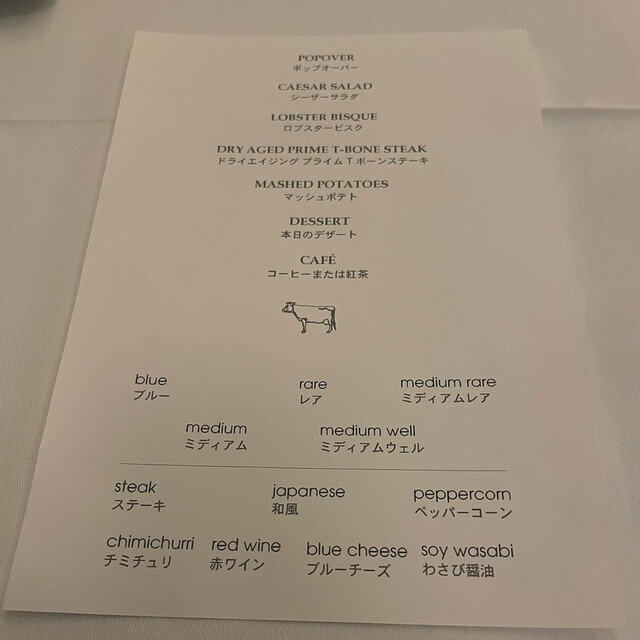 POPOVER
ポップオーバー
CAESAR SALAD
シーザーサラダ
LOBSTER BISQUE
ロブスタービスク
DRY AGED PRIME T-BONE STEAK
ドライエイジング プライム T ボーンステーキ
MASHED POTATOES
マッシュポテト
DESSERT
本日のデザート
CAFÉ
コーヒーまたは紅茶
blue rare medium rare
ブルー レア ミディアムレア
medium medium well
ミディアム ミディアムウェル
steak japanese peppercorn
ステーキ 和風 ペッパーコーン
chimichurri red wine blue cheese soy wasabi
チミチュリ 赤ワイン ブルーチーズ わさび醤油